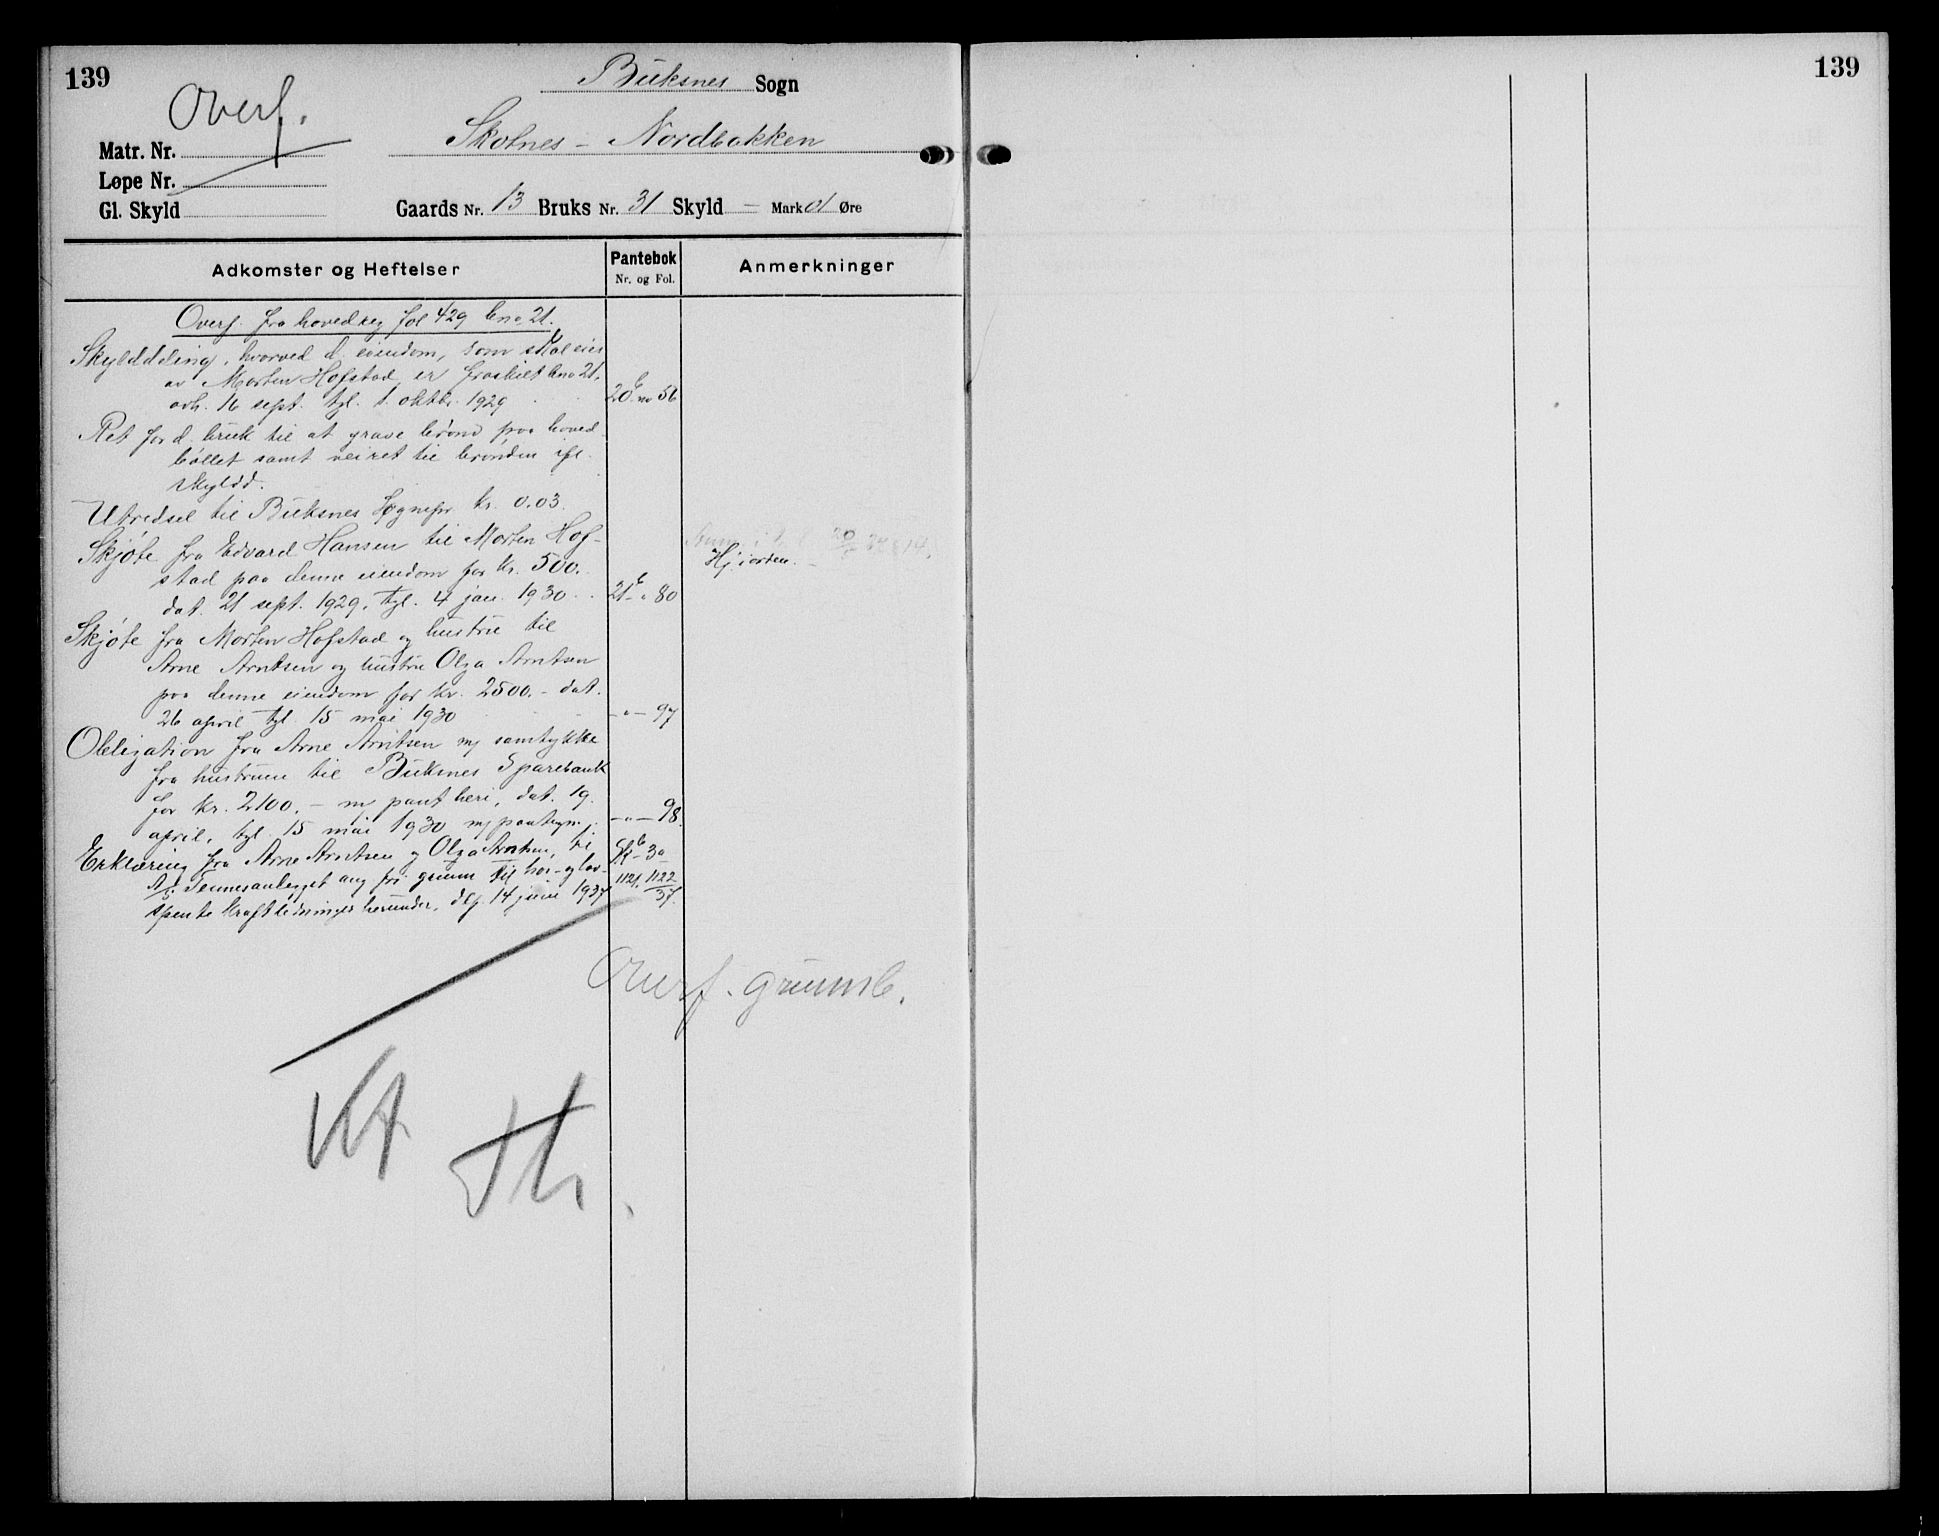 139
Overf.
Buksnes Sogn
Matr. Nr.
Skotnes - Nordbakken
Løpe Nr.
Gl. Skyld
Gaards Nr. 13 Bruks Nr. 31 Skyld — Mark 01 Øre
Adkomster og Heftelser
Pantebok
Nr. og Fol.
Anmerkninger
Overf. fra hovedreg fol 429 bno 21.
Skylddeling, hvorved d. eiendom, som skal eies
av Morten Hofstad, er fraskilt bno 21,
avh. 16 sept. tgl. 1. oktbr. 1929
20 b no 56
Ret for d. bruk til at grave brønd paa hoved
bøllet samt veiret til brønden ifl.
skyldd.
Utredsel til Buksnes Sognepr kr. 0.03.
Skjøte fra Edvard Hansen til Morten Hof-
stad paa denne eiendom for kr. 500.
dat. 21 sept. 1929, tgl. 4 jan. 1930
21 b - " 80
Hjorten.
Skjøte fra Morten Hofstad og hustru til
Arne Arntsen og hustru Olga Arntsen
paa denne eiendom for kr. 2500.- dat.
26 april tgl. 15 mai 1930
— " — 97
Obligation fra Arne Arntsen m/ samtykke
fra hustruen til Buksnes Sparebank
for kr. 2100.- m/ pant heri, dat. 19.
april, tgl. 15 mai 1930 m/ paategn.
— " — 98.
Erklæring fra Arne Arntsen og Olga Arntsen, til
A/S Tennesanlegget ang fri grunn til høi- og lav-
spente kraftledninger herunder, dgf. 14 juni 1937
1121. 1122
37.
Overf. grunnb.
139